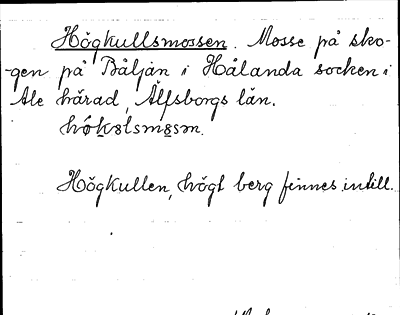 Högkullsmossen. Mosse på sko-
-gen på Båljän i Hålanda socken i
Ale härad, Älfsborgs län.

Högkullen, högt berg finnes intill.